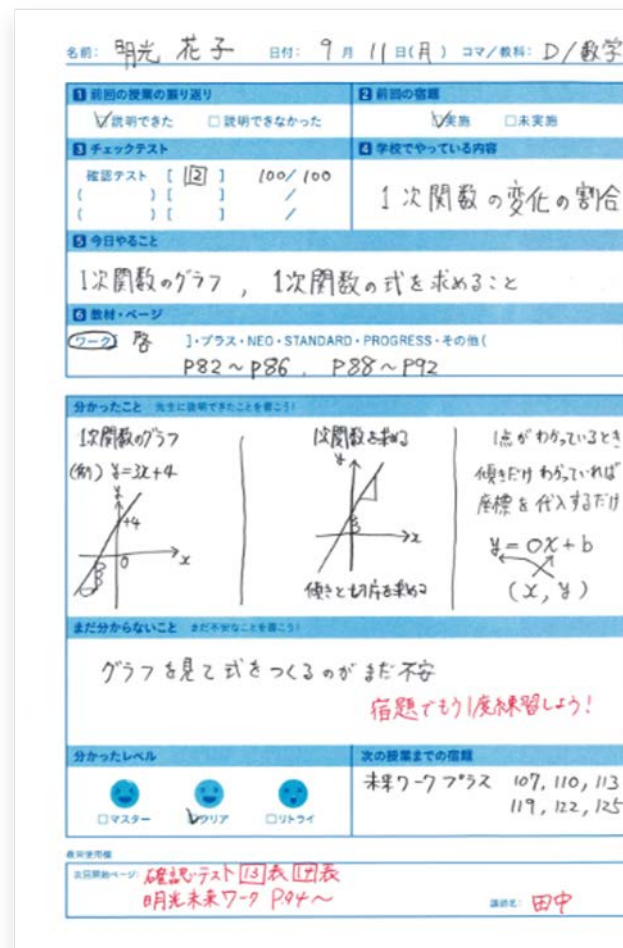 名前: 明光 花子 日付: 9月11日(月) コマ/教科: D/数学
1 前回の授業の振り返り 2 前回の宿題
☑説明できた □説明できなかった ☑実施 □未実施
3 チェックテスト 4 学校でやっている内容
確認テスト [ 12 ] 100/100
( ) [ ] /
( ) [ ] /
1次関数の変化の割合
5 今日やること
1次関数のグラフ, 1次関数の式を求めること
6 教材・ページ
ワーク 啓 ]・プラス・NEO・STANDARD・PROGRESS・その他(
P82~P86, P88~P92
分かったこと 先生に説明できたことを書こう!
1次関数のグラフ
(例) y=3x+4
y
+4
0
x
1次関数を求める
y
x
傾きと切片を求める
1点がわかっているとき
傾きだけわかっていれば
座標を代入するだけ
y=ox+b
(x, y)
まだ分からないこと まだ不安なことを書こう!
グラフを見て式をつくるのがまだ不安
宿題でもう1度練習しよう!
分かったレベル 次の授業までの宿題
□マスター ☑クリア □リトライ
未来ワークプラス 107, 110, 113
119, 122, 125
教室使用欄
次回開始ページ: 確認テスト 13 表 14 表
明光未来ワーク P.94~
講師名: 田中